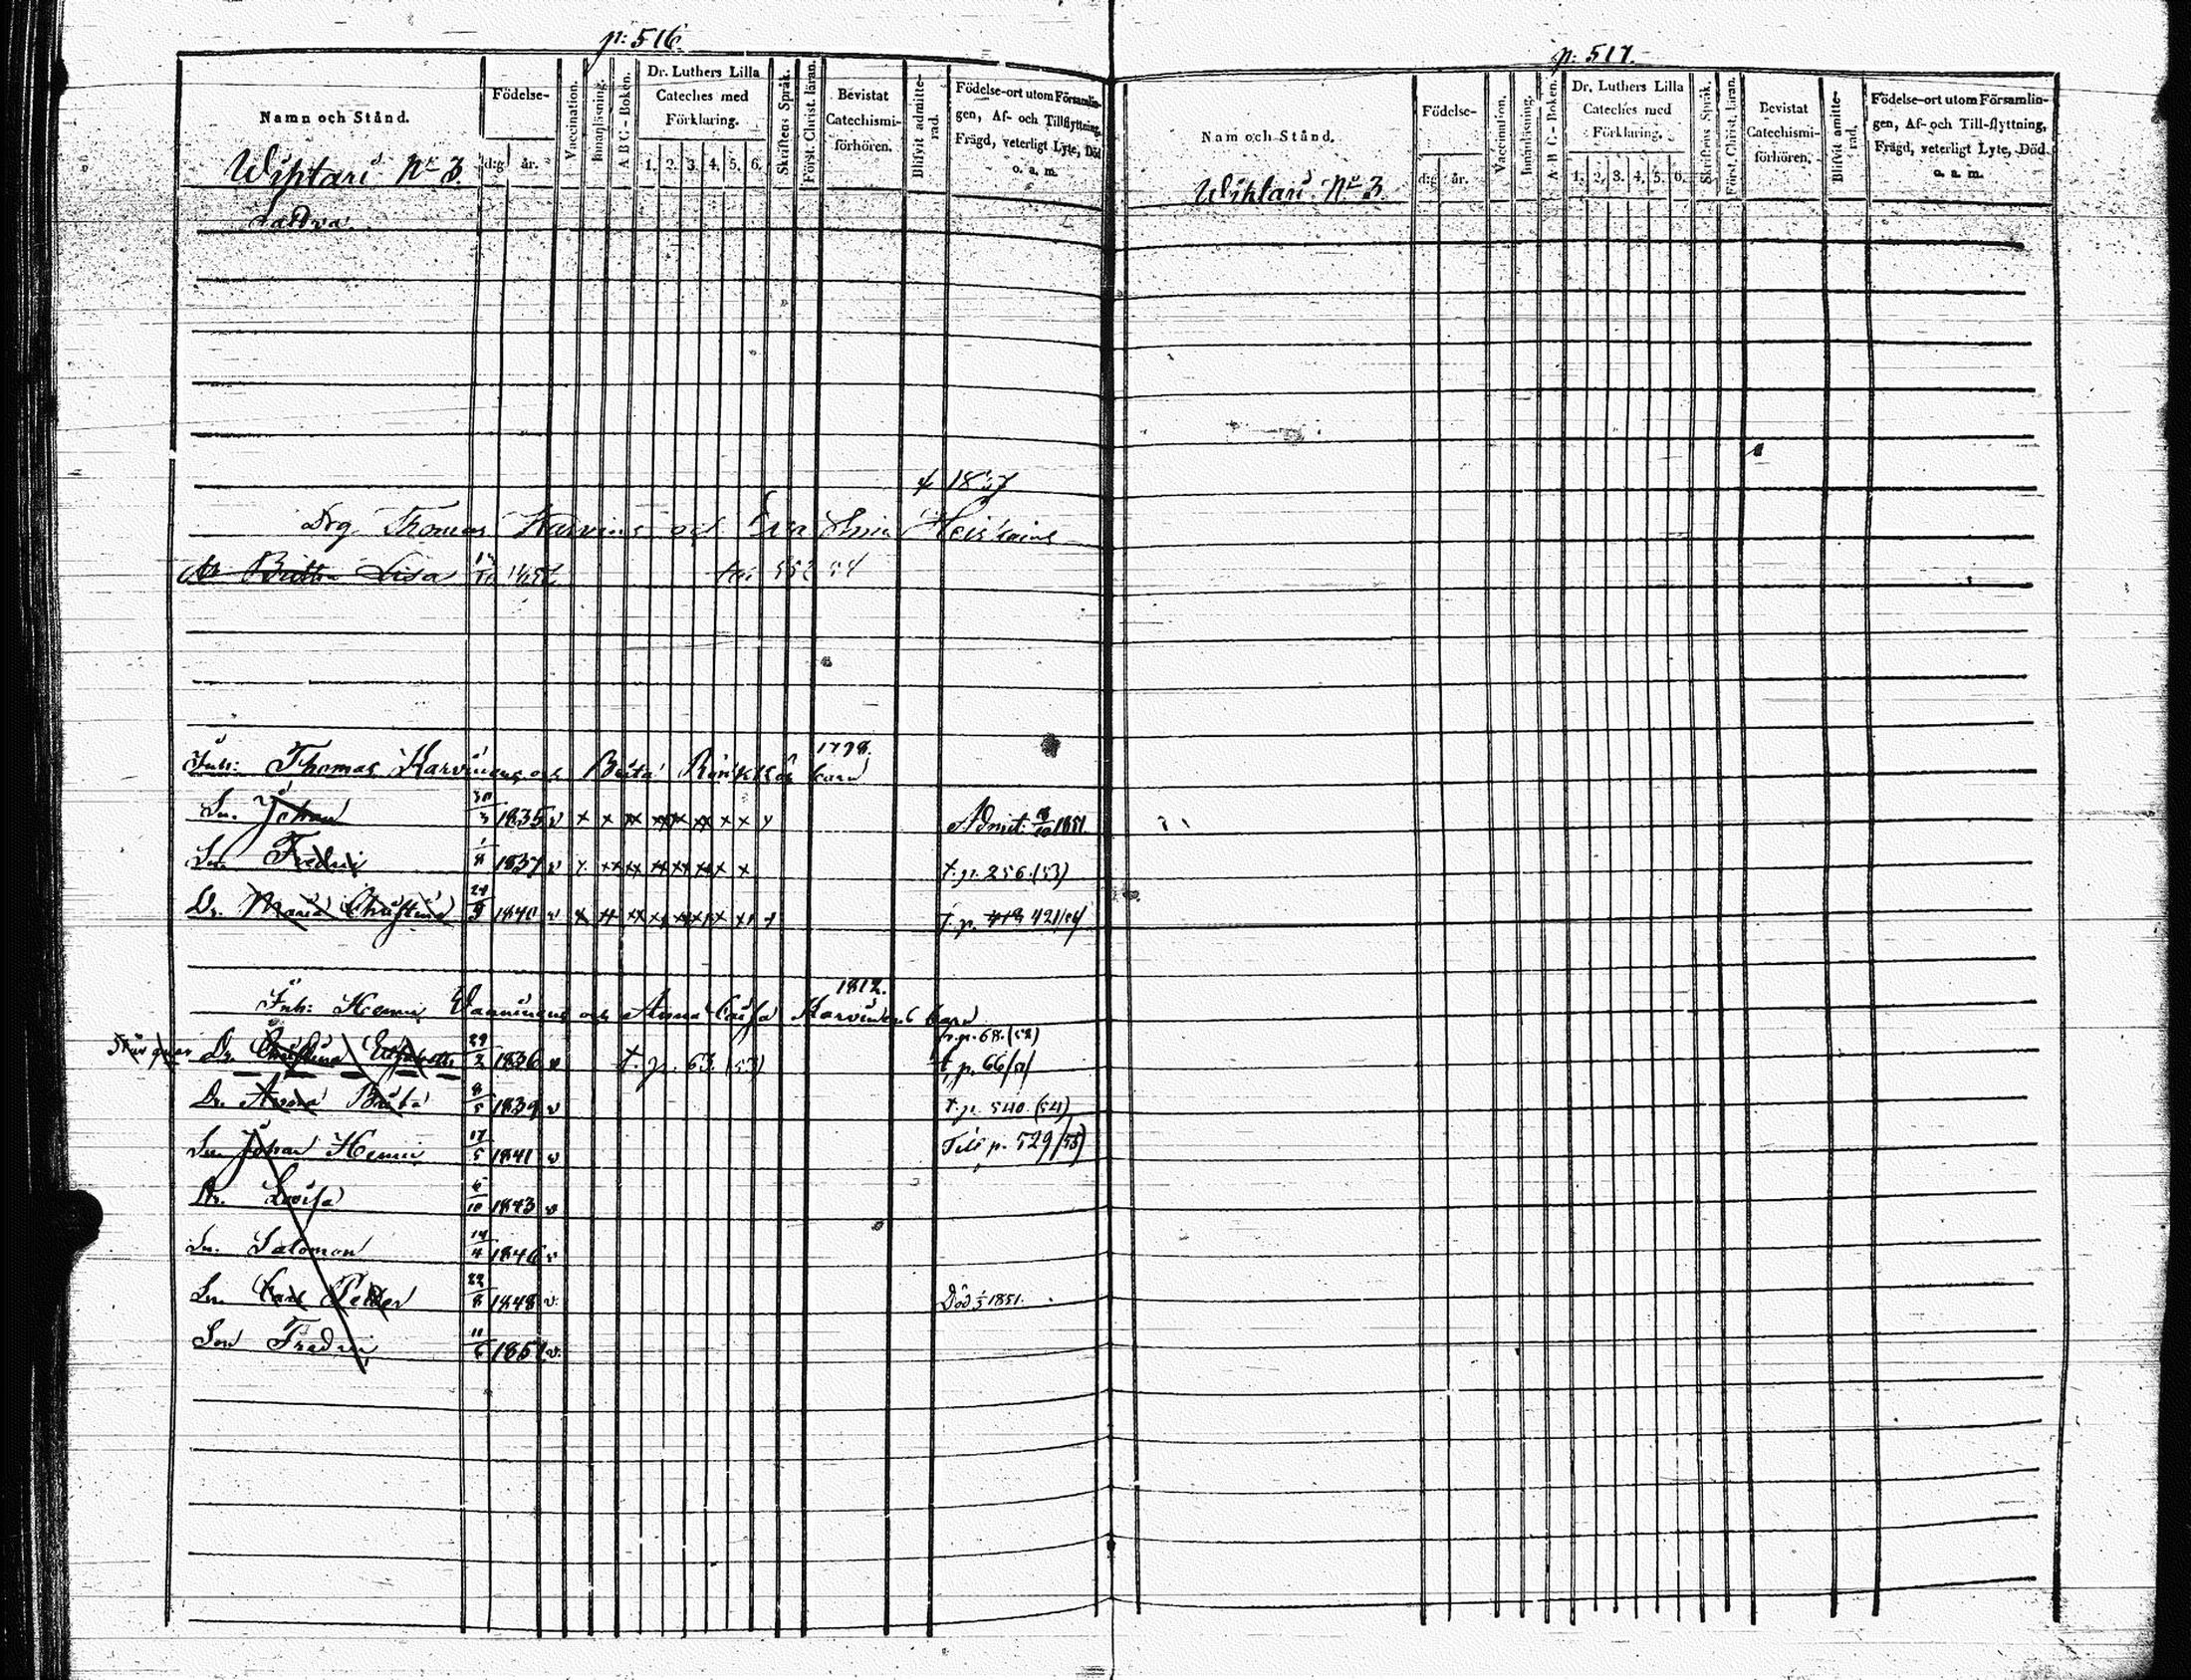 p: 516.
Namn och Stånd.
Födelse-
dag
år.
Vaccination.
Innanläsning.
A B C - Boken.
Dr. Luthers Lilla
Cateches med
Förklaring.
1. 2. 3. 4. 5. 6.
Skriftens Språk.
Först. Christ. läran.
Bevistat
Catechismi-
förhören.
Blifvit admitte-
rad.
Födelse-ort utom Församlin-
gen, Af- och Tillflyttning,
Frägd, veterligt Lyte, Död
o. a. m.
No 3.
1857
Drg. Thomas Karvinens och Eva
Britta Lisa
Inh: Thomas Karvinens och Brita barn 1798.
Sn. Johan 30/3 1835 v x x xx xx xx x x x Admit. 1851.
Sn. Fredric 1837 v t. p. 256. (53)
Dr. Maria Christina 1840 v t. p. 413 421/54
Inh: Henric Vänninens och Anna Caisa Karvinens barn 1812.
fr. p. 68. (52)
Dr. Christina Elisabeth 29/2 1836 v t. p. 63. (53) t. p. 66/51
Dr. Anna Brita 8/5 1839 v t. p. 540. (54)
Sn. Johan Henric 17/5 1841 v Till p. 529/55
Dr. Lovisa 6/10 1843 v
Sn. Salomon 14/4 1846 v
Sn. Carl Petter 22/8 1848 v. Död 1851.
Son Fredric 1851 v.
p: 517.
Nam och Stånd.
No 3.
Födelse-
dag
år.
Vaccination.
Innanläsning.
A B C - Boken.
Dr. Luthers Lilla
Cateches med
Förklaring.
1. 2. 3. 4. 5. 6.
Skriftens Språk.
Först. Christ. läran.
Bevistat
Catechismi-
förhören.
Blifvit amitte-
rad.
Födelse-ort utom Församlin-
gen, Af- och Till-flyttning,
Frägd, veterligt Lyte, Död
o. a. m.